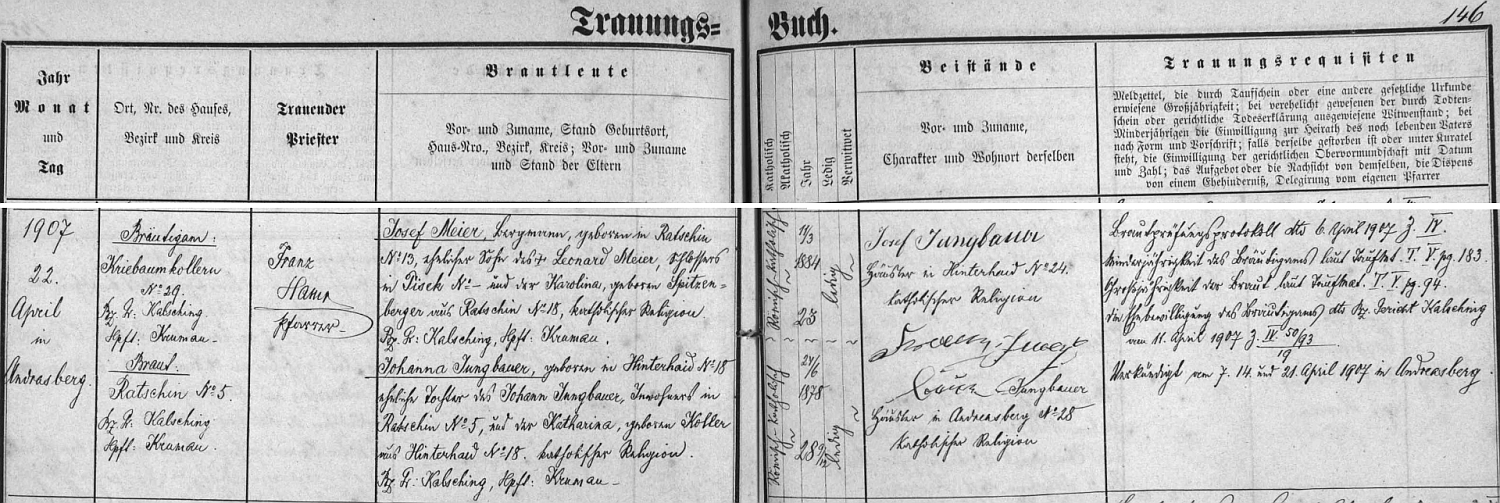 Trauungs=Buch.
146
Jahr
Monat
und
Tag
Ort, Nr. des Hauses,
Bezirk und Kreis
Trauender
Priester
Brautleute
Vor- und Zuname, Stand Geburtsort,
Haus-Nro., Bezirk, Kreis; Vor- und Zuname
und Stand der Eltern
Katholisch
Akatholisch
Jahr
Ledig
Verwitwet
Beistände
Vor- und Zuname,
Charakter und Wohnort derselben
Trauungsrequisiten
Meldzettel, die durch Taufschein oder eine andere gesetzliche Urkunde
erwiesene Großjährigkeit; bei verehelicht gewesenen der durch Todten-
schein oder gerichtliche Todeserklärung ausgewiesene Witwenstand; bei
Minderjährigen die Einwilligung zur Heirath des noch lebenden Vaters
nach Form und Vorschrift; falls derselbe gestorben ist oder unter Kuratel
steht, die Einwilligung der gerichtlichen Obervormundschaft mit Datum
und Zahl; das Aufgebot oder die Nachsicht von demselben, die Dispens
von einem Ehehinderniß, Delegirung vom eigenen Pfarrer
1907
22.
April
in
Andreasberg.
Bräutigam:
Kriebaumkollern
No 29
Bz. G: Kalsching
Hpft. Krumau.
Braut.
Ratschin No 5.
Bz. G: Kalsching
Hpft: Krumau.
Franz
Pfarrer
Josef Meier, Bergmann, geboren in Ratschin
No 13, ehelicher Sohn des † Leonard Meier, Schlossers
in Pisek No – und der Karolina, geboren Spitzen-
berger aus Ratschin No 18, katholischer Religion.
Bz. G: Kalsching, Hpft. Krumau.
Johanna Jungbauer, geboren in Hinterhaid No 18
eheliche Tochter des Johann Jungbauer, Inwohners in
Ratschin No 5, und der Katharina, geboren Koller
aus Hinterhaid No 18. katholischer Religion.
Bz. G: Kalsching, Hpft: Krumau
Römisch-katholisch
1884
23
ledig
Römisch-katholisch
1878
28
ledig
Josef Jungbauer
Häusler in Hinterhaid No 24.
katholischer Religion
Jungbauer
Häusler in Andreasberg No 28
katholischer Religion
Brautprüfungsprotokoll dto 6. April 1907 Z. IV.
Minderjährigkeit des Bräutigams laut Taufmat. T. V. pg. 183.
Großjährigkeit der Braut laut Taufmat. T. V. pg. 94.
die Ehebewilligung des Bräutigams dto Bz. Gericht Kalsching
am 11. April 1907 Z. IV 50/93
19
Verkündigt am 7. 14. und 21. April 1907 in Andreasberg.